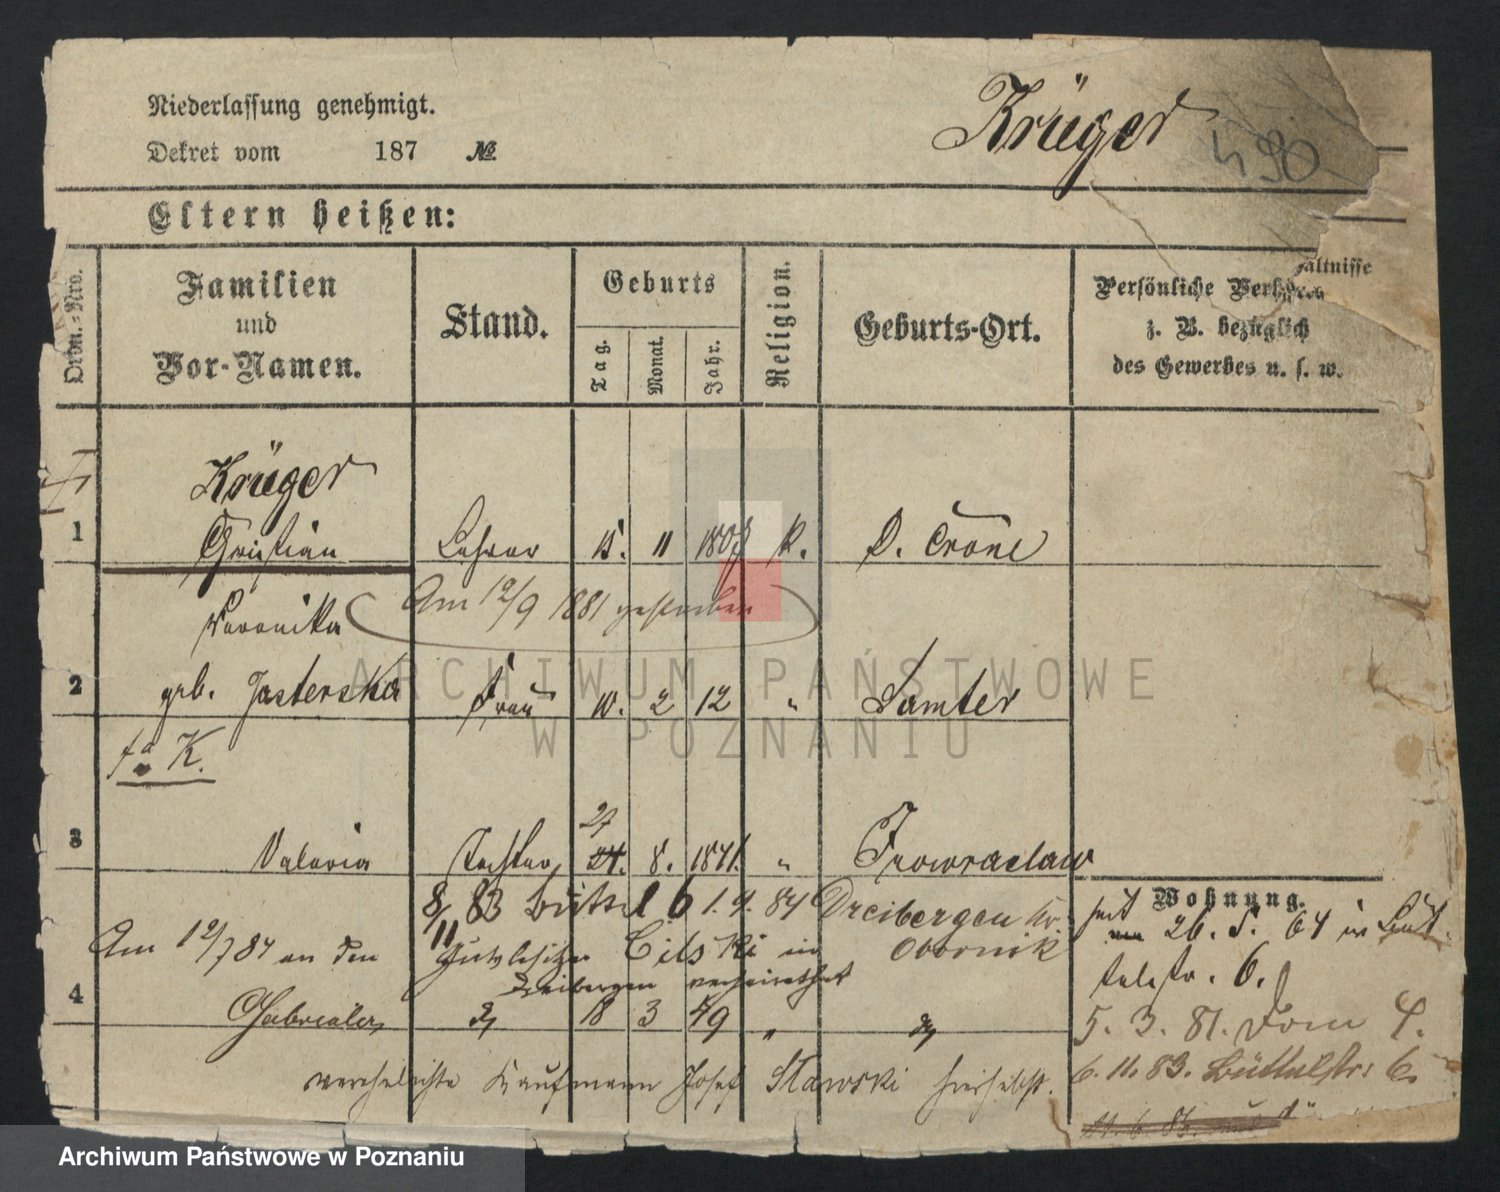 Niederlassung genehmigt.
Dekret vom 187 №
Krüger
490
Eltern heißen:
Ordn.-Nro.
Familien und Vor-Namen.
Stand.
Geburts
Tag.
Monat.
Jahr.
Religion.
Geburts-Ort.
Persönliche Verhältnisse
z. B. bezüglich
des Gewerbes u. s. w.
Krüger
1 Christian Lehrer 15. 11 1807 k. D. Crone
Am 12/9 1881 gestorben
Veronika
2 geb. Jasterska Frau 10. 2 12 " Samter
K.
27
3 Valeria Tochter 24. 8. 1841. " Inowraclaw
Wohnung.
8/11 83 Büttel 16 1. 9. 84 Dreibergen Kr. Obornik
seit 26. 5. 64 in Büttelstr. 6.
Am 12/7 84 an den Gutsbesitzer Cilski in
Dreibergen verheirathet
4 Gabriela 18 3 49 "
5. 3. 81. Dom 4.
verehelichte Kaufmann Josef Slawski hierselbst.
6. 11. 83. Büttelstr. 6.
ARCHIWUM PAŃSTWOWE
W POZNANIU
Archiwum Państwowe w Poznaniu